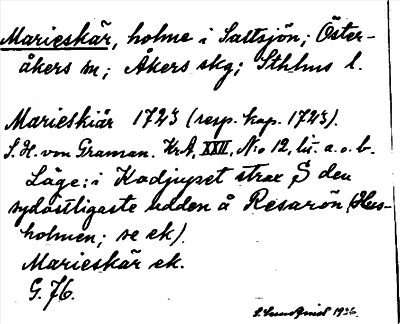 Marieskär, holme i Saltsjön; Öster-
åkers sn; Åkers skg; Sthlms l.
Marieskiär 1723 (resp. kop. 1723).
S. H. von Graman. KrA, XXII, N:o 12, lit. a. o. b.
Läge: i Kodjupet strax S den
sydöstligaste udden å Resarön (Hus-
holmen; se ek).
Marieskär ek.
G. 76.
1936.